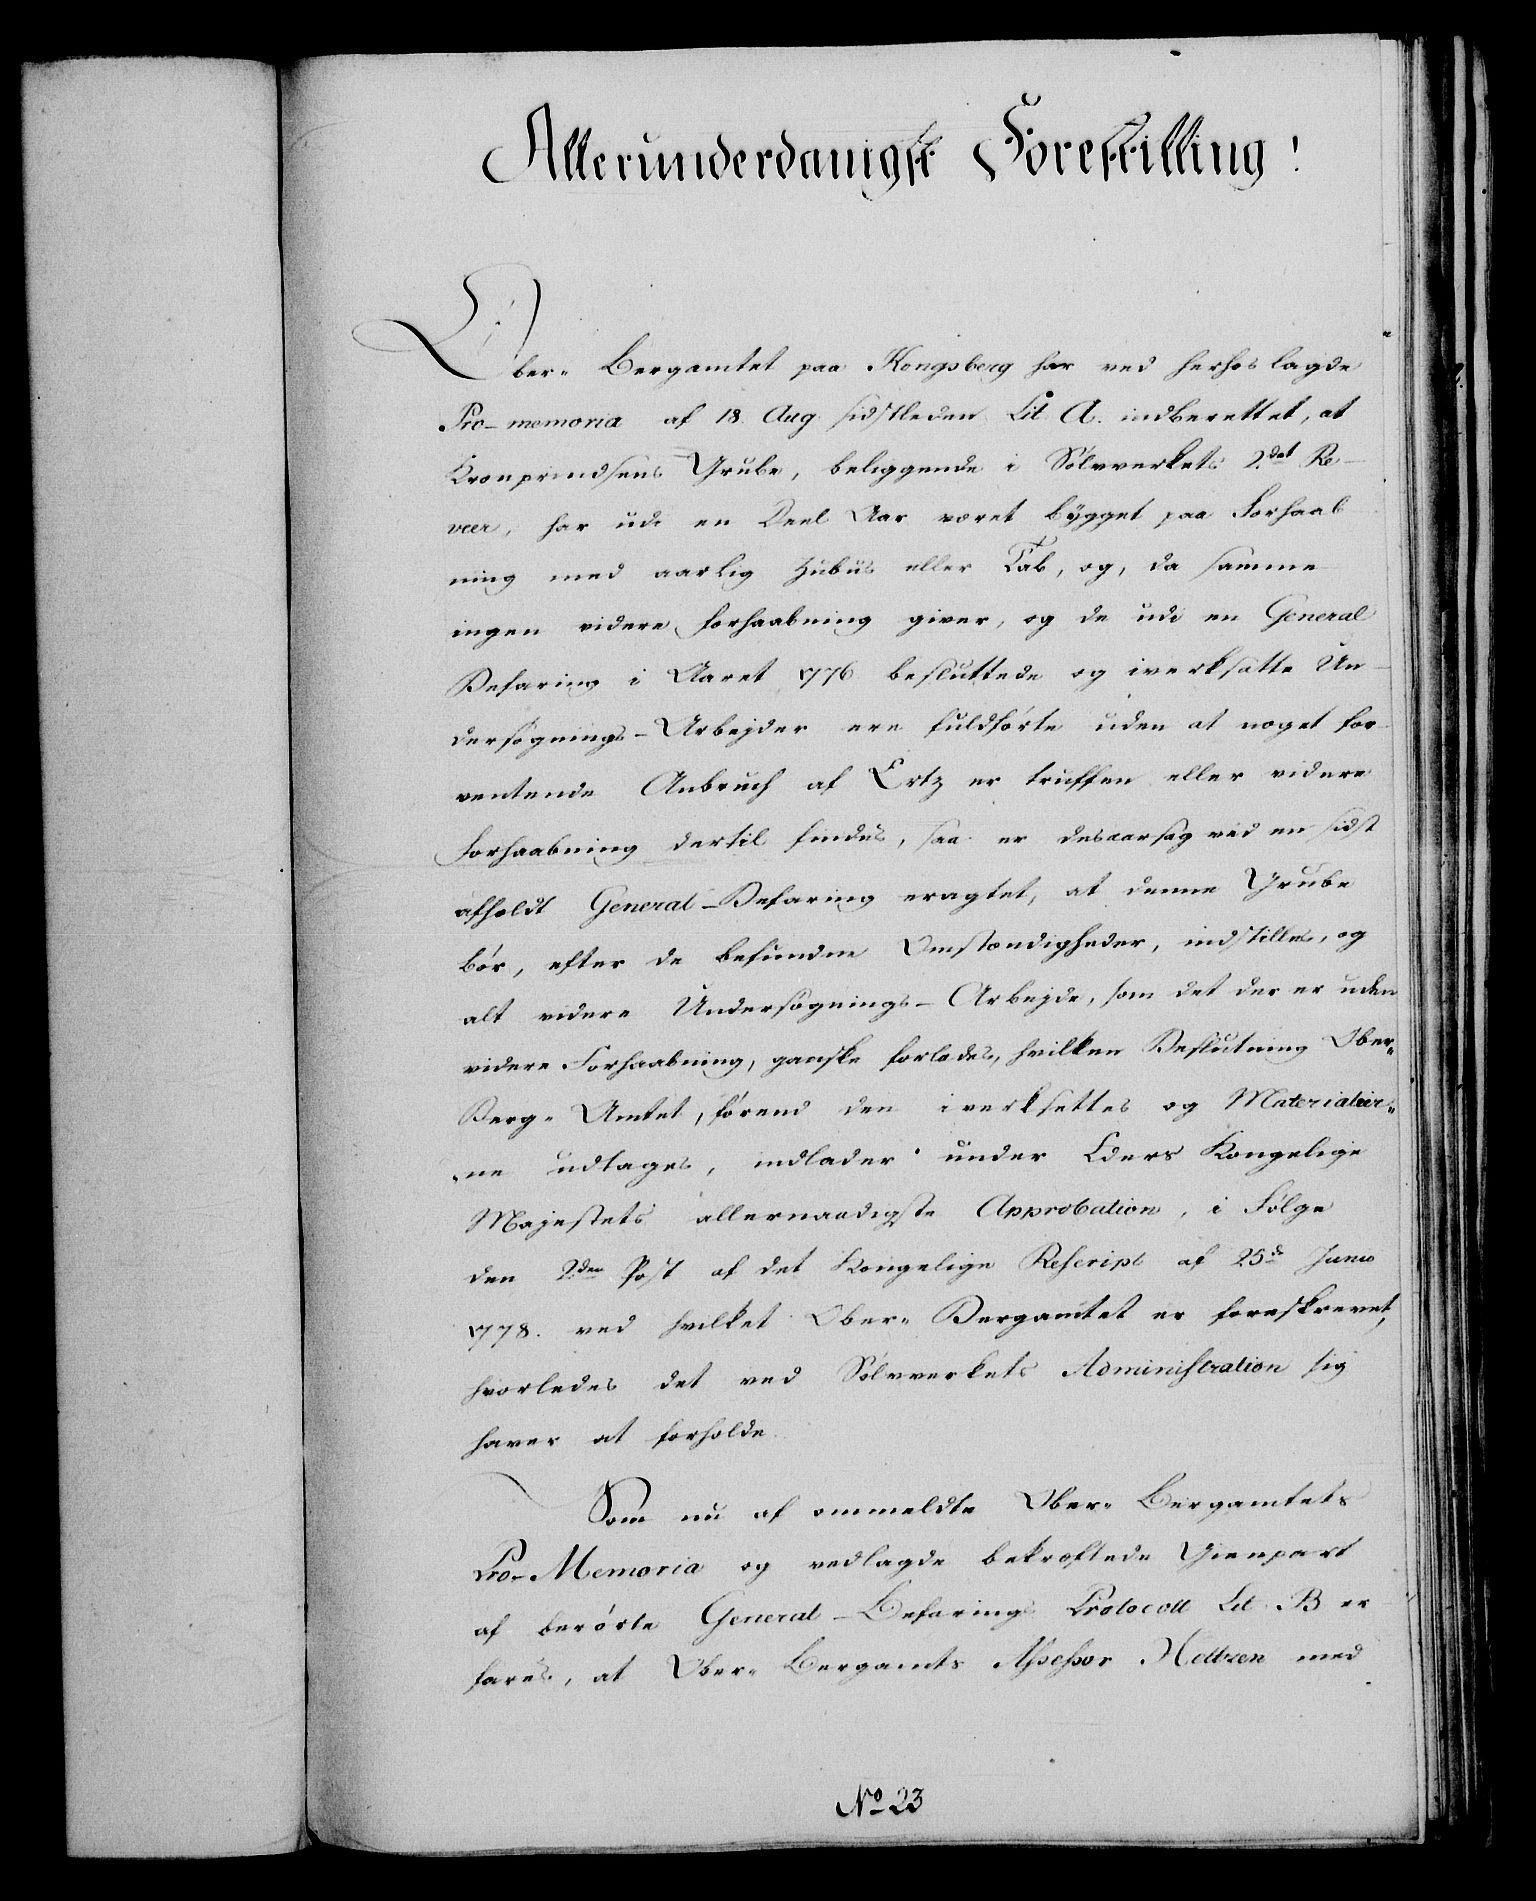 Allerunderdanigst Forestilling!
Ober= Bergamtet paa Kongsberg har ved herhos lagde
Pro-memoria af 18. Aug. sidstleden Lit. A. indberettet, at
Kronprindsens Grube, beliggende i Sölvverkets 2det Re-
veer, har udi en Deel Aar været bygget paa Forhaab
ning med aarlig Zubus eller Tab, og, da samme
ingen videre forhaabning giver, og de udi en General
Befaring i Aaret 1776 besluttede og iverksatte Un-
dersøgnings-Arbejder ere fuldførte uden at noget for-
ventende Anbruch af Ertz er truffen eller videre
forhaabning dertil findes, saa er desaarsag ved en sidst
afholdt General-Befaring eragtet, at denne Grube
bør, efter de befundne Omstændigheder, indstilles, og
alt videre Undersøgnings-Arbejde, som det der er uden
videre Forhaabning, ganske forlades, hvilken Beslutning Ober=
Berg= Amtet, førend den iverksettes og Materialier=
=ne udtages, indlader under Eders Kongelige
Majestets allernaadigste Approbation, i Følge
den 2den Post af det Kongelige Rescript af 25de Junii
1778. ved hvilket Ober= Bergamtet er foreskrevet,
hvorledes det ved Sölvverkets Administration sig
haver at forholde.
Som nu af ommeldte Ober= Bergamtets
Pro-Memoria og vedlagde bekræftede Gienpart
af berørte General-Befarings Protocoll Lit. B er
fares, at Ober= Bergamts Assessor Heltzen med
No 23